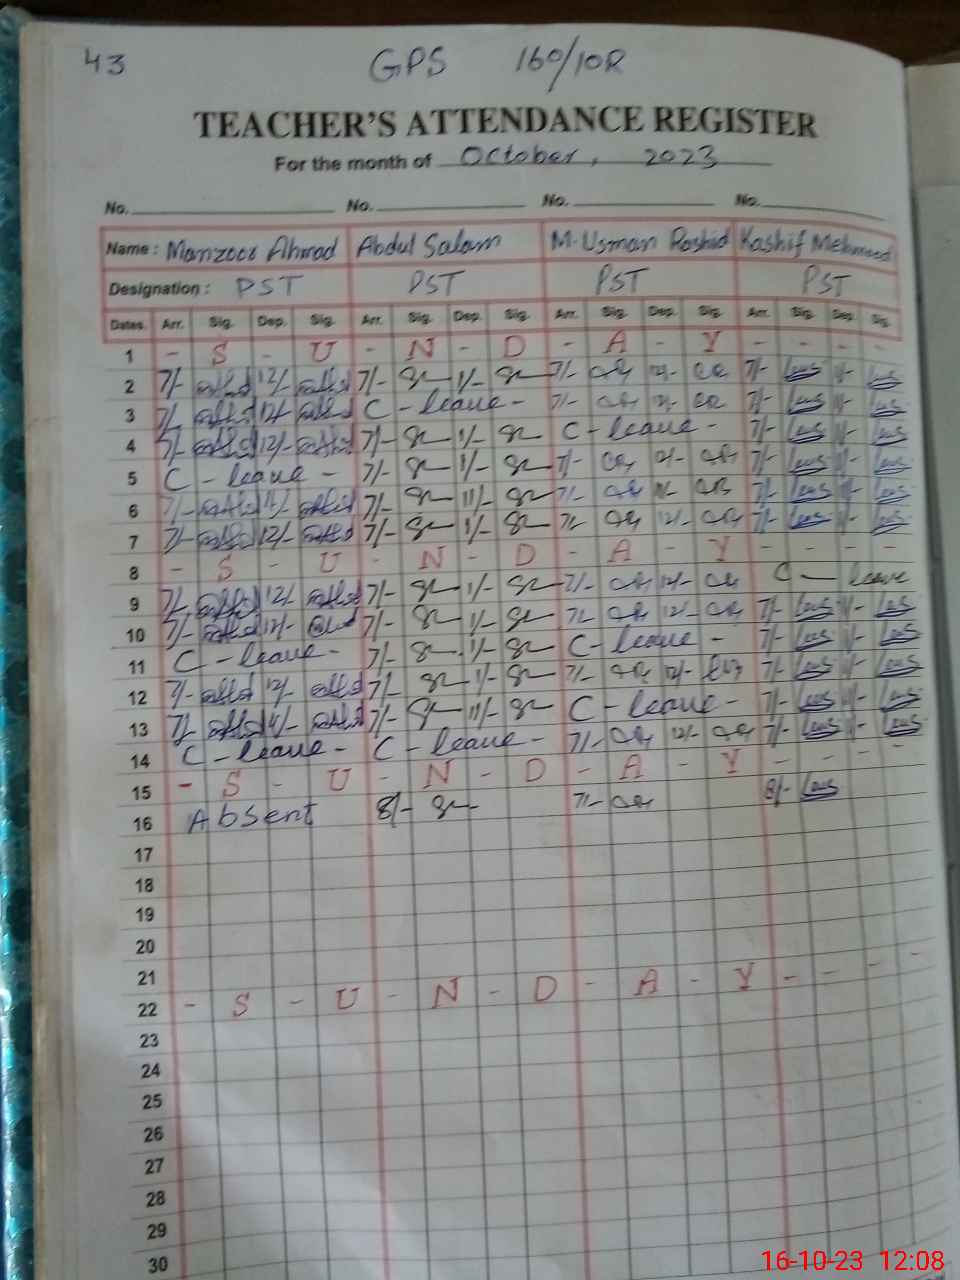 43 GPS 160/10R
TEACHER'S ATTENDANCE REGISTER
For the month of October, 2023
No. No. No. No.
Name : Manzoor Ahmad Abdul Salam M. Usman Rashid Kashif Mehmood
Designation : PST PST PST PST
Dates. Arr. Sig. Dep. Sig. Arr. Sig. Dep. Sig. Arr. Sig. Dep. Sig. Arr. Sig. Dep. Sig.
1 - S - U - N - D - A - Y - - - -
2 7/- 12/- 7/- 1/- 7/- 12/- 7/- 1/-
3 7/- 12/- C - leave - 7/- 12/- 7/- 1/-
4 7/- 12/- 7/- 1/- C - leave - 7/- 1/-
5 C - leave - 7/- 1/- 7/- 12/- 7/- 1/-
6 7/- 11/- 7/- 11/- 7/- 11/- 7/- 11/-
7 7/- 12/- 7/- 1/- 7/- 12/- 7/- 1/-
8 - S - U - N - D - A - Y - - - -
9 7/- 12/- 7/- 1/- 7/- 12/- C - leave
10 7/- 12/- 7/- 1/- 7/- 12/- 7/- 1/-
11 C - leave - 7/- 1/- C - leave - 7/- 1/-
12 7/- 12/- 7/- 1/- 7/- 12/- 7/- 1/-
13 7/- 11/- 7/- 11/- C - leave - 7/- 11/-
14 C - leave - C - leave - 7/- 12/- 7/- 1/-
15 - S - U - N - D - A - Y - - - -
16 Absent 8/- 7/- 8/-
17
18
19
20
21
22 - S - U - N - D - A - Y - - - -
23
24
25
26
27
28
29
30
16-10-23 12:08